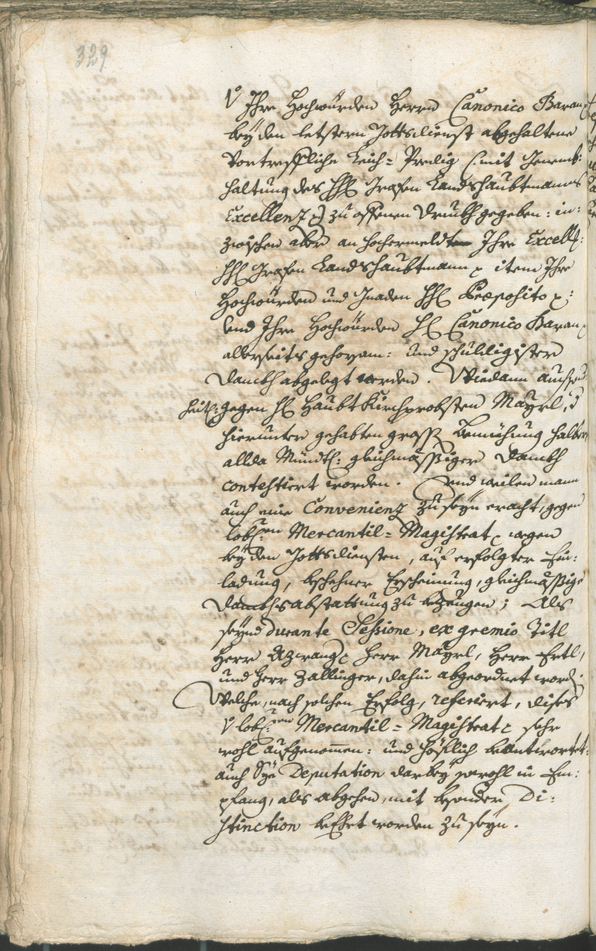 329
V Ihre Hochwürden Herrn Canonico Baran
bey dem letztern Gottsdienst abgehaltene
Vortreffliche Leich- Predig
haltung des H: Grafen Landshaubtmans
Excellenz zu offenen Druckh gegeben: in-
zwischen aber an hochermeldte Ihre Excell:
H: Grafen Landshaubtmann p item Ihre
Hochwürden und Gnaden H: Preposito p:
und Ihre Hochwürden H: Canonico Baran
allerseits gehorsam: und schuldigister
Danckh abgelegt werden. Wiedann auch
gegen H: Haubt Kirchprobsten Mayrl,
hierunter gehabten gross Bemühung halber
allda Mündtl: gleichmässiger Danckh
contestiert worden. Und weilen mann
auch eine Convenienz zu seyn eracht, gegen
lobl: Mercantil- Magistrat, wegen
bey den Gottsdiensten, auf erfolgter Ein-
ladung, beschehner Erscheinung, gleichmässige
Danckhsabstattung zu bezeugen; Als
seynd durante Sessione, ex gremio Titl
Herr Azwang, Herr Mayrl, Herr Ertl,
und Herr Zallinger, dahin abgeordnet word:
Welche, nach solchen Erfolg, referiert, dises
V lobl: Mercantil- Magistrat sehr
wohl aufgenommen: und höfflich beantwortet:
auch Sye Deputation darbey sowohl in Em-
pfang, als abgehen, mit besonder Di-
stinction worden zu seyn.